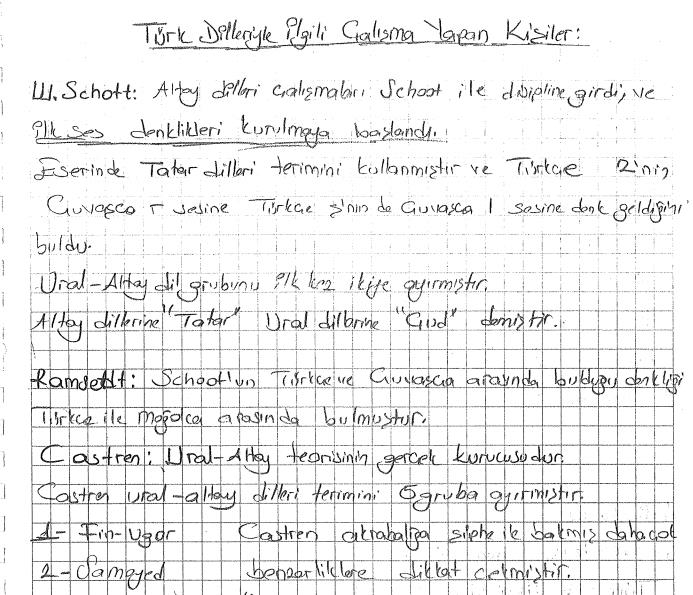 Türk Dilleriyle ilgili Çalışma Yapan Kişiler:
W. Schott: Altay dilleri çalışmaları Schoot ile disipline girdi, ve
ilk ses denklikleri kurulmaya başlandı.
Eserinde Tatar dilleri terimini kullanmıştır ve Türkçe z'nin
Çuvaşça r sesine Türkçe ş'nin de Çuvaşça l sesine denk geldiğini
buldu.
Ural-Altay dil grubunu ilk kez ikiye ayırmıştır.
Altay dillerine "Tatar" Ural dillerine "Çud" demiştir.
Ramsetdt: Schoot'un Türkçe ve Çuvaşça arasında bulduğu denkliği
Türkçe ile moğolca arasında bulmuştur.
Castren: Ural-Altay teorisinin gerçek kurucusudur.
Castren ural-altay dilleri terimini 5 gruba ayırmıştır.
1- Fin-Ugor Castren akrabalığa şüphe ile bakmış daha çok
2- Samoyed benzerliklere dikkat çekmiştir.